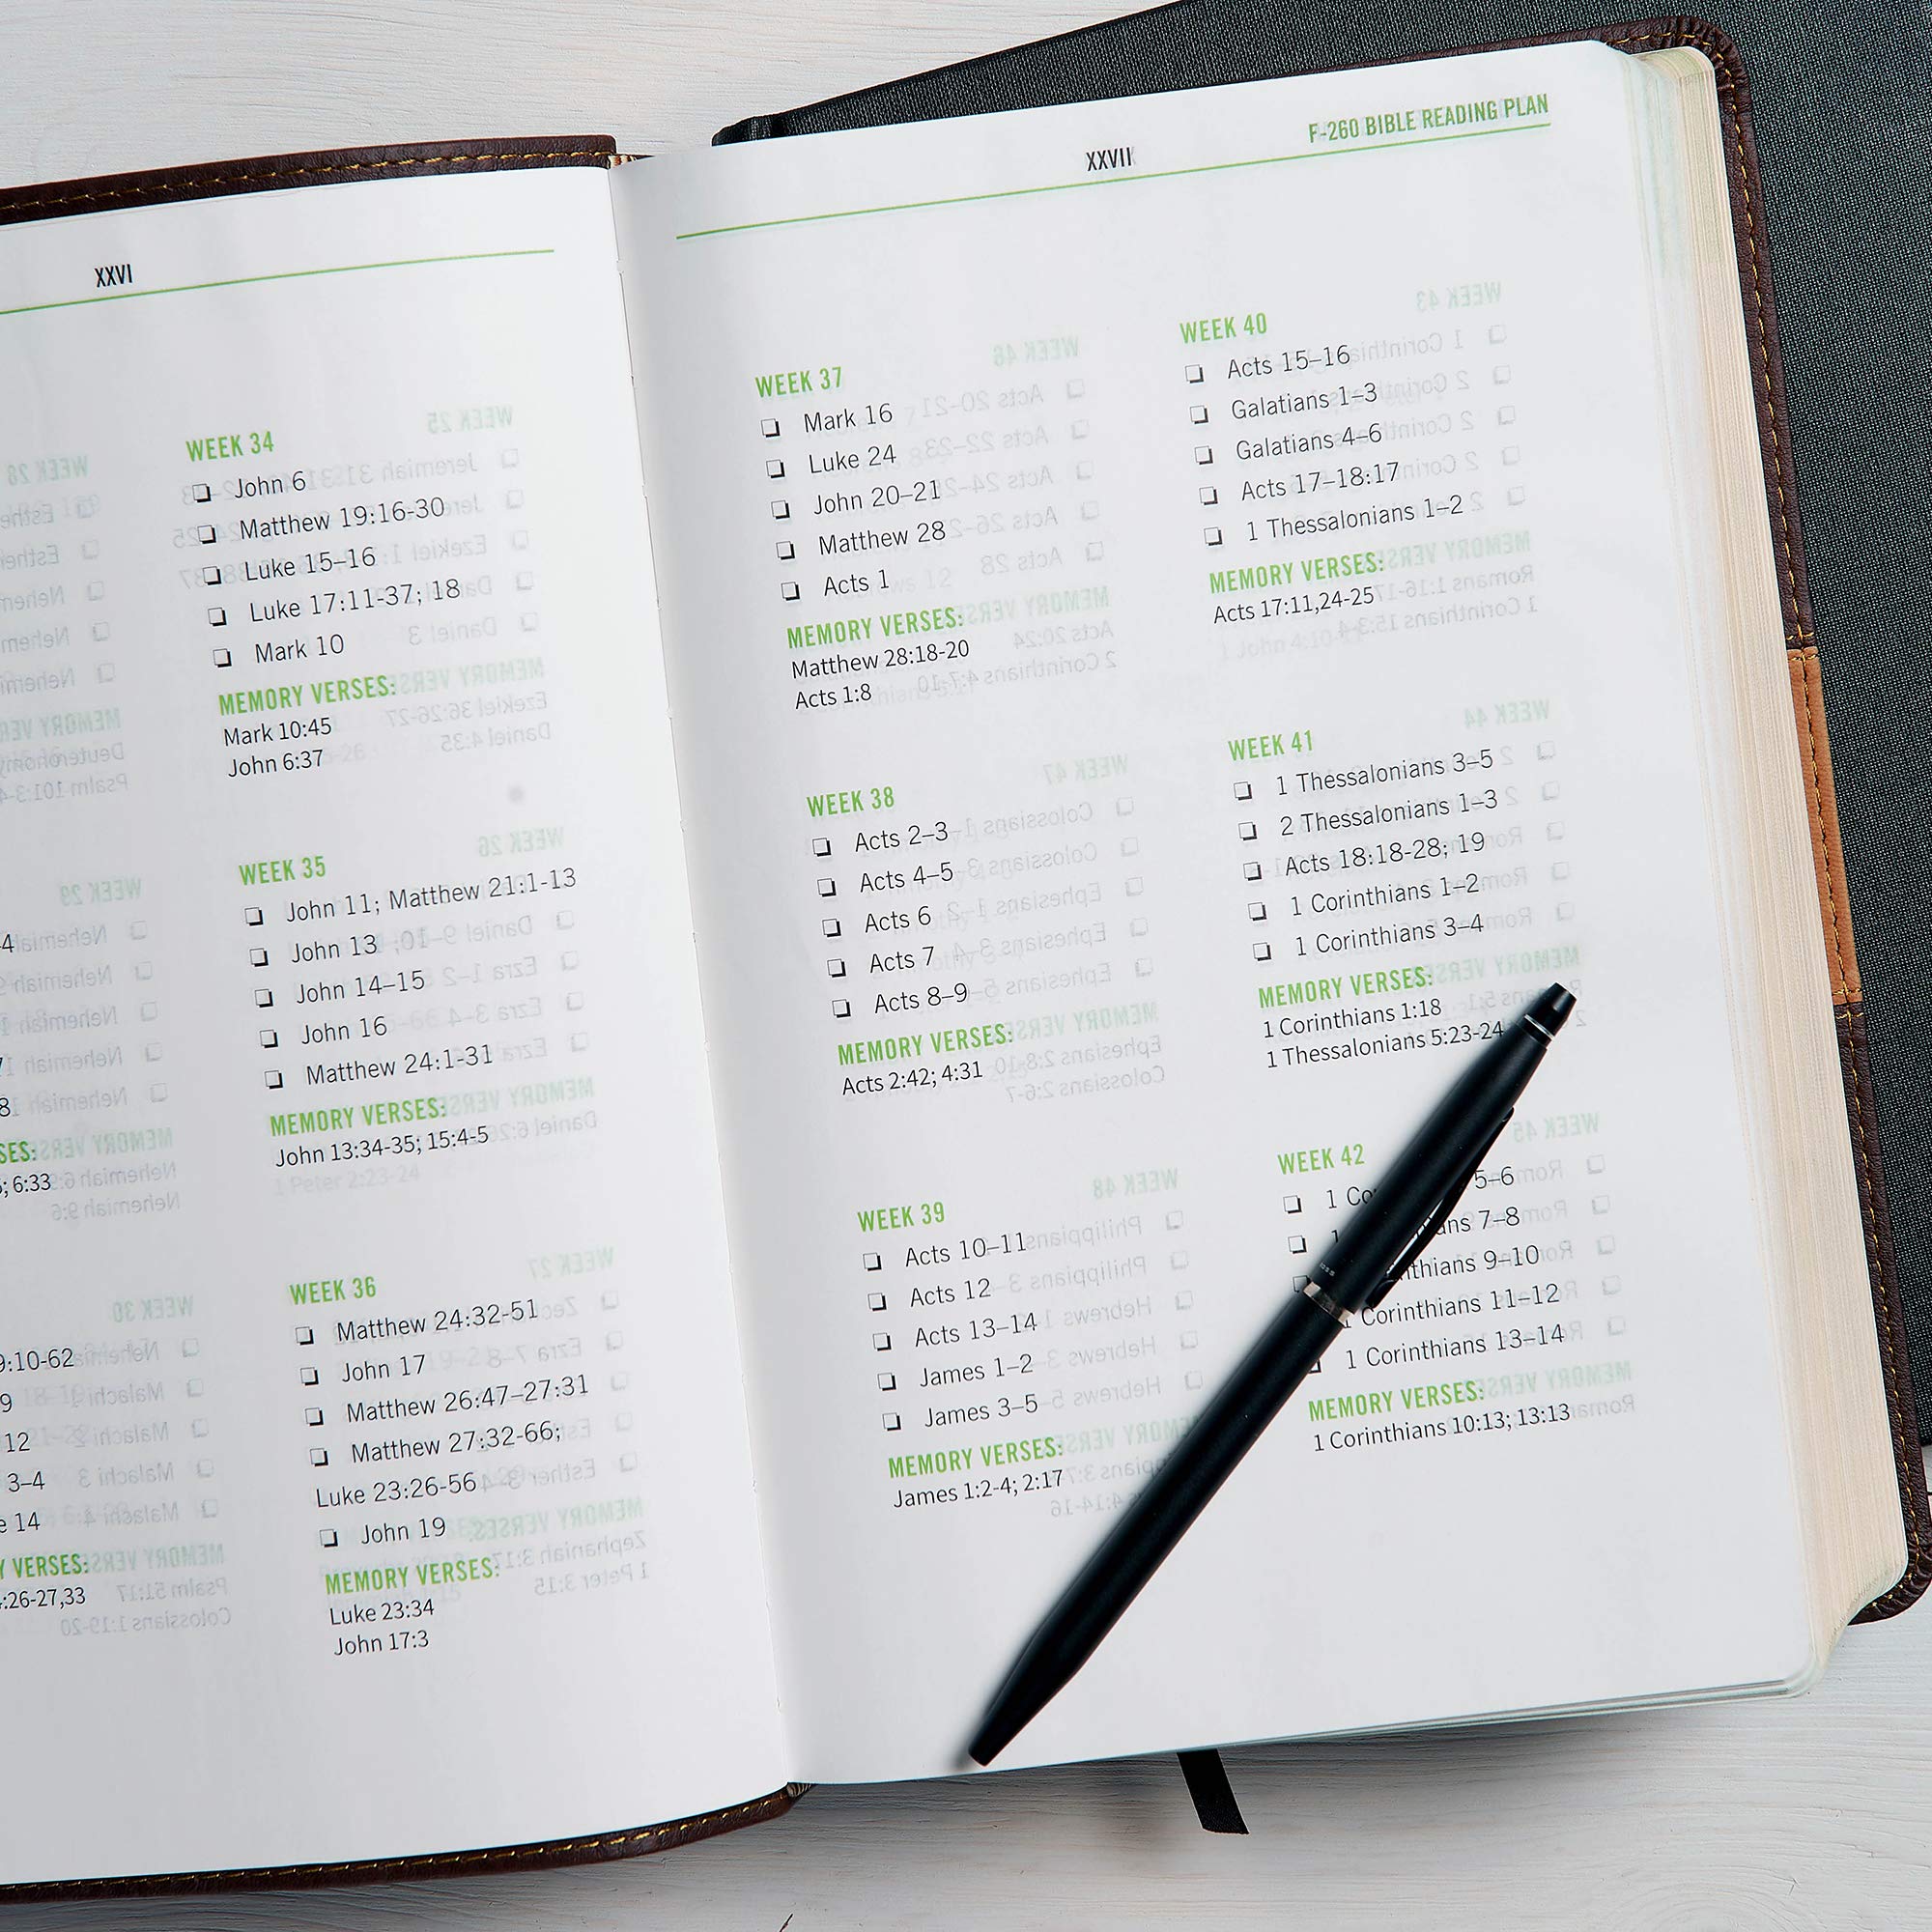 XXVI
4
8
SES:
; 6:33
9:10-62
9
12
3–4
14
VERSES:
:26-27,33
WEEK 34
John 6
Matthew 19:16-30
Luke 15–16
Luke 17:11-37; 18
Mark 10
MEMORY VERSES:
Mark 10:45
John 6:37
WEEK 35
John 11; Matthew 21:1-13
John 13
John 14–15
John 16
Matthew 24:1-31
MEMORY VERSES:
John 13:34-35; 15:4-5
WEEK 36
Matthew 24:32-51
John 17
Matthew 26:47–27:31
Matthew 27:32-66;
Luke 23:26-56
John 19
MEMORY VERSES:
Luke 23:34
John 17:3
XXVII
F-260 BIBLE READING PLAN
WEEK 37
Mark 16
Luke 24
John 20–21
Matthew 28
Acts 1
MEMORY VERSES:
Matthew 28:18-20
Acts 1:8
WEEK 38
Acts 2–3
Acts 4–5
Acts 6
Acts 7
Acts 8–9
MEMORY VERSES:
Acts 2:42; 4:31
WEEK 39
Acts 10–11
Acts 12
Acts 13–14
James 1–2
James 3–5
MEMORY VERSES:
James 1:2-4; 2:17
WEEK 40
Acts 15–16
Galatians 1–3
Galatians 4–6
Acts 17–18:17
1 Thessalonians 1–2
MEMORY VERSES:
Acts 17:11,24-25
WEEK 41
1 Thessalonians 3–5
2 Thessalonians 1–3
Acts 18:18-28; 19
1 Corinthians 1–2
1 Corinthians 3–4
MEMORY VERSES:
1 Corinthians 1:18
1 Thessalonians 5:23-24
WEEK 42
1 Co 5–6
1 ns 7–8
thians 9–10
1 Corinthians 11–12
1 Corinthians 13–14
MEMORY VERSES:
1 Corinthians 10:13; 13:13